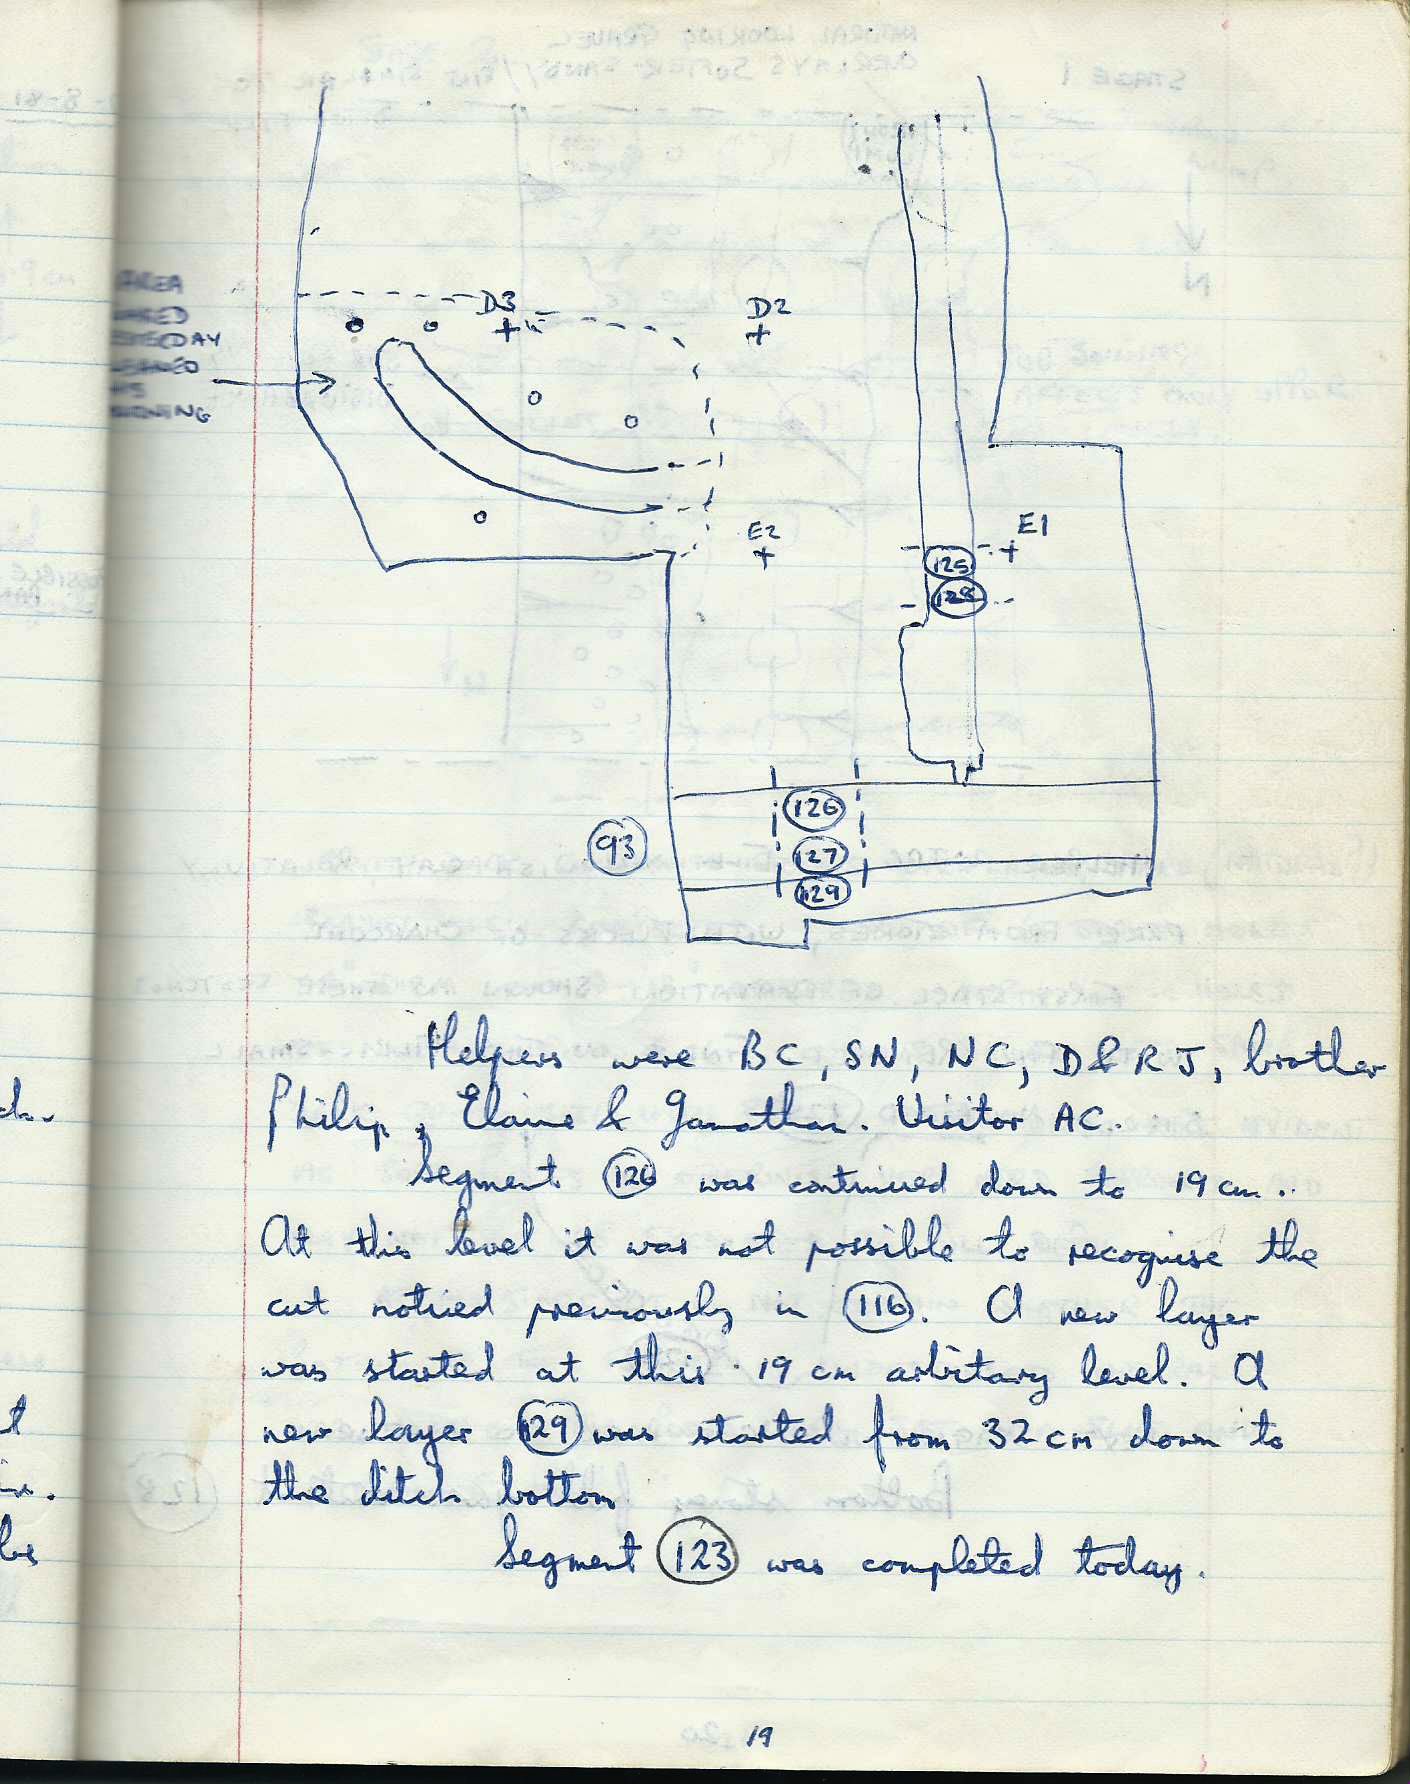 AREA
YESTERDAY
MORNING
D3
D2
E2
E1
125
128
126
93
127
129
Helpers were BC, SN, NC, D&RJ, brother
Philip, Elaine & Jonathan. Visitor AC.
Segment 126 was continued down to 19 cm.
At this level it was not possible to recognise the
cut noticed previously in 116. A new layer
was started at this 19 cm arbitary level. A
new layer 129 was started from 32 cm down to
the ditch bottom
Segment 123 was completed today.
19